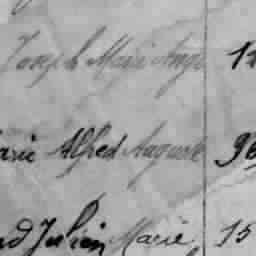 Joseph Marie Ange 12
arie Alfred Auguste 96
nd Julien Marie 15